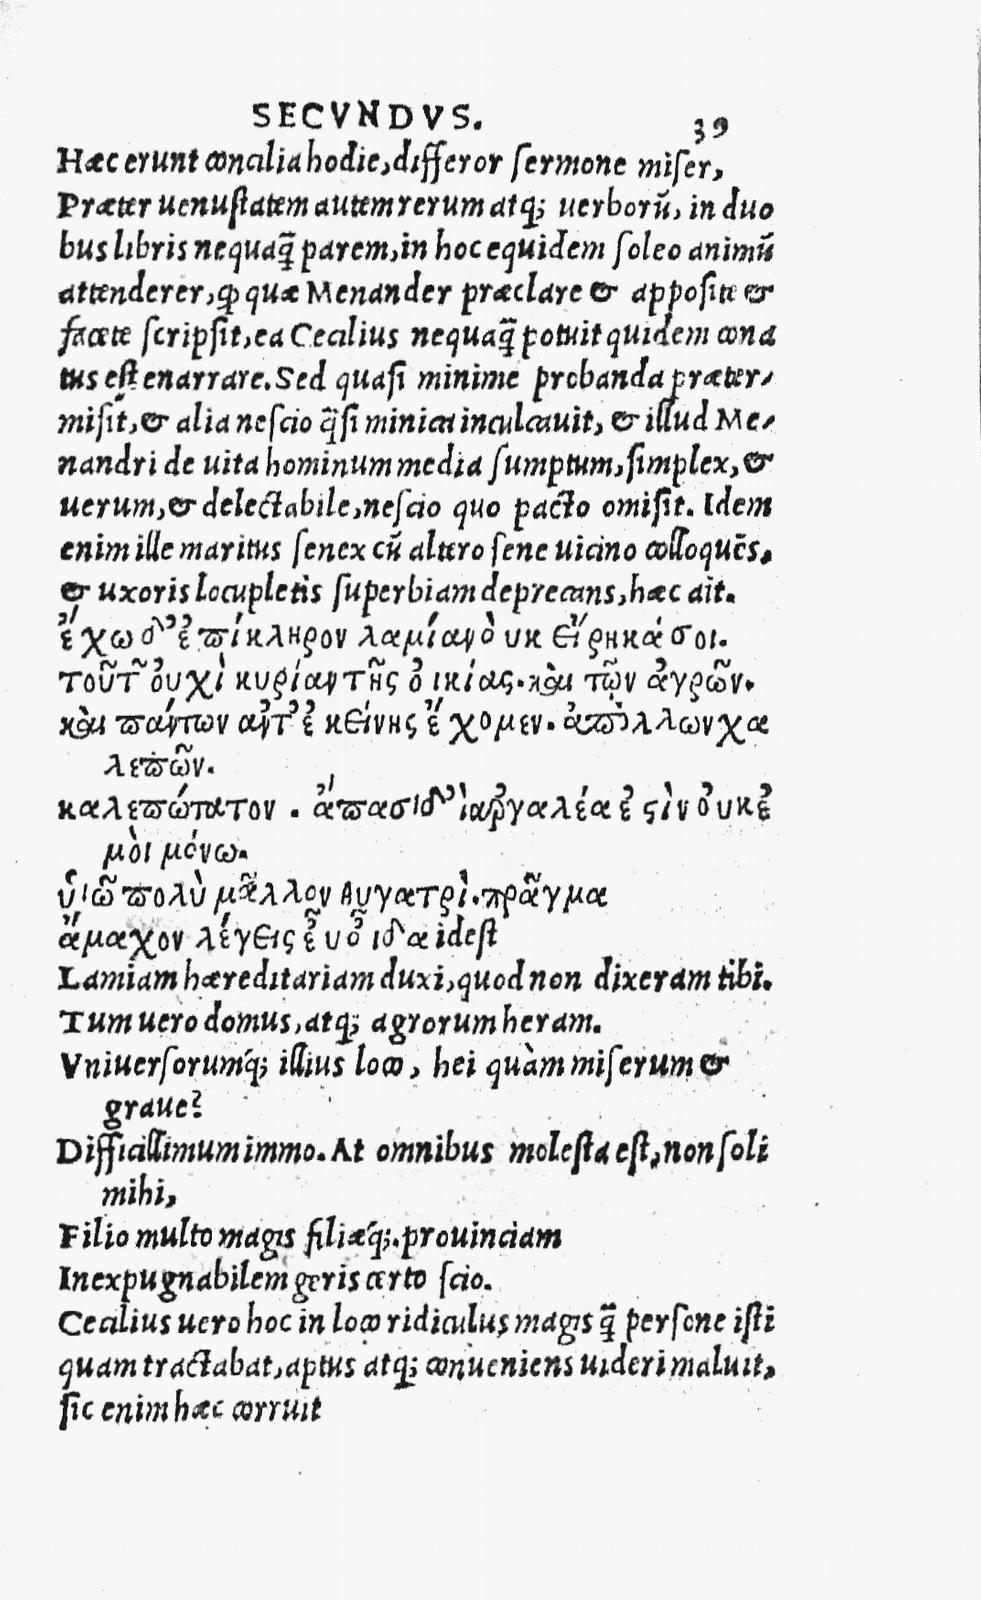 SECVNDVS. 39
Hæc erunt concilia hodie, differor sermone miser,
Præter uenustatem autem rerum atq; uerborū, in duo
bus libris nequaq̃ parem, in hoc equidem soleo animū
attenderer, ꝙ quæ Menander præclare & apposite &
facete scripsit, ea Cecilius nequaq̃ potuit quidem cona
tus est enarrare. Sed quasi minime probanda præter-
misit, & alia nescio q̃si minica inculcauit, & illud Me-
nandri de uita hominum media sumptum, simplex, &
uerum, & delectabile, nescio quo pacto omisit. Idem
enim ille maritus senex cū altero sene uicino colloquēs.
& uxoris locupletis superbiam deprecans, hæc ait.
ἔχω δ' ἐπίκληρον λαμίαν ὸ υκ εἴρηκά σοι.
τοῦτ̃ ὀυχὶ κυρίαν τῆς ὀ ικίας. καὶ τῶν ἀγρῶν.
καὶ πάντων ἀντ' ἐκείνης ἔχομεν. ἀπὸλλων χα
λεπῶν.
καλεπώτατον. ἅπασι δ' ἰαργαλέα ἐςὶν ὀυκ ἐ
μὸι μόνω.
ὑιῶ πολὺ μᾶλλον θυγατρὶ. πρᾶγμα
ἄμαχον λέγεις ἐ͂υ ὀ͂ ιδα idest
Lamiam hæreditariam duxi, quod non dixeram tibi.
Tum uero domus, atq; agrorum heram.
Vniuersorumq́; illius loco, hei quàm miserum &
graue?
Difficillimum immo. At omnibus molesta est, non soli
mihi,
Filio multo magis filiæq́;. prouinciam
Inexpugnabilem geris certo scio.
Cecilius uero hoc in loco ridiculus magis q̃ persone isti
quam tractabat, aptus atq; conueniens uideri maluit,
sic enim hæc corruit